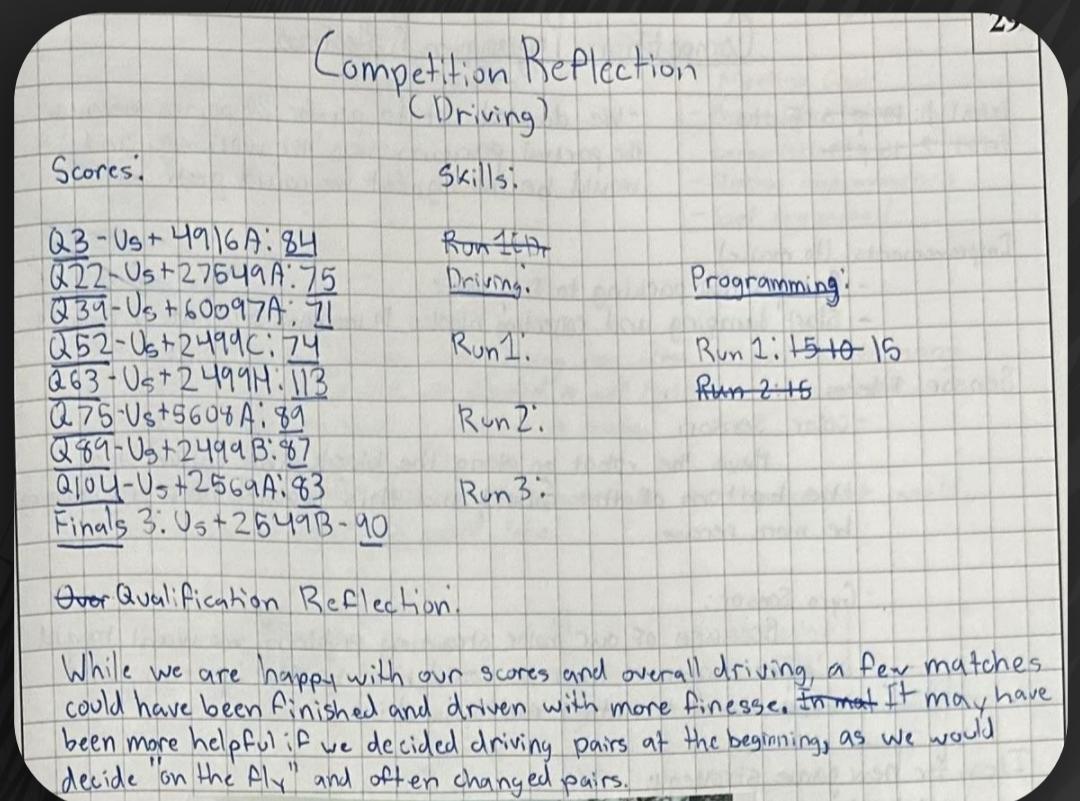 29
Competition Reflection
(Driving)
Scores:
Skills:
Q3-Us+4916A: 84
Q22-Us+27549A: 75
Q39-Us+60097A: 71
Q52-Us+2499C: 74
Q63-Us+2499H: 113
Q75-Us+5608A: 89
Q89-Us+2499B: 87
Q104-Us+2569A: 83
Finals 3: Us+2549B-90
Run 1
Driving:
Run1:
Run2:
Run3:
Programming:
Run 1: 15 10 15
Run 2: 15
Over Qualification Reflection:
While we are happy with our scores and overall driving, a few matches
could have been finished and driven with more finesse. In mat It may have
been more helpful if we decided driving pairs at the beginning, as we would
decide "on the fly" and often changed pairs.